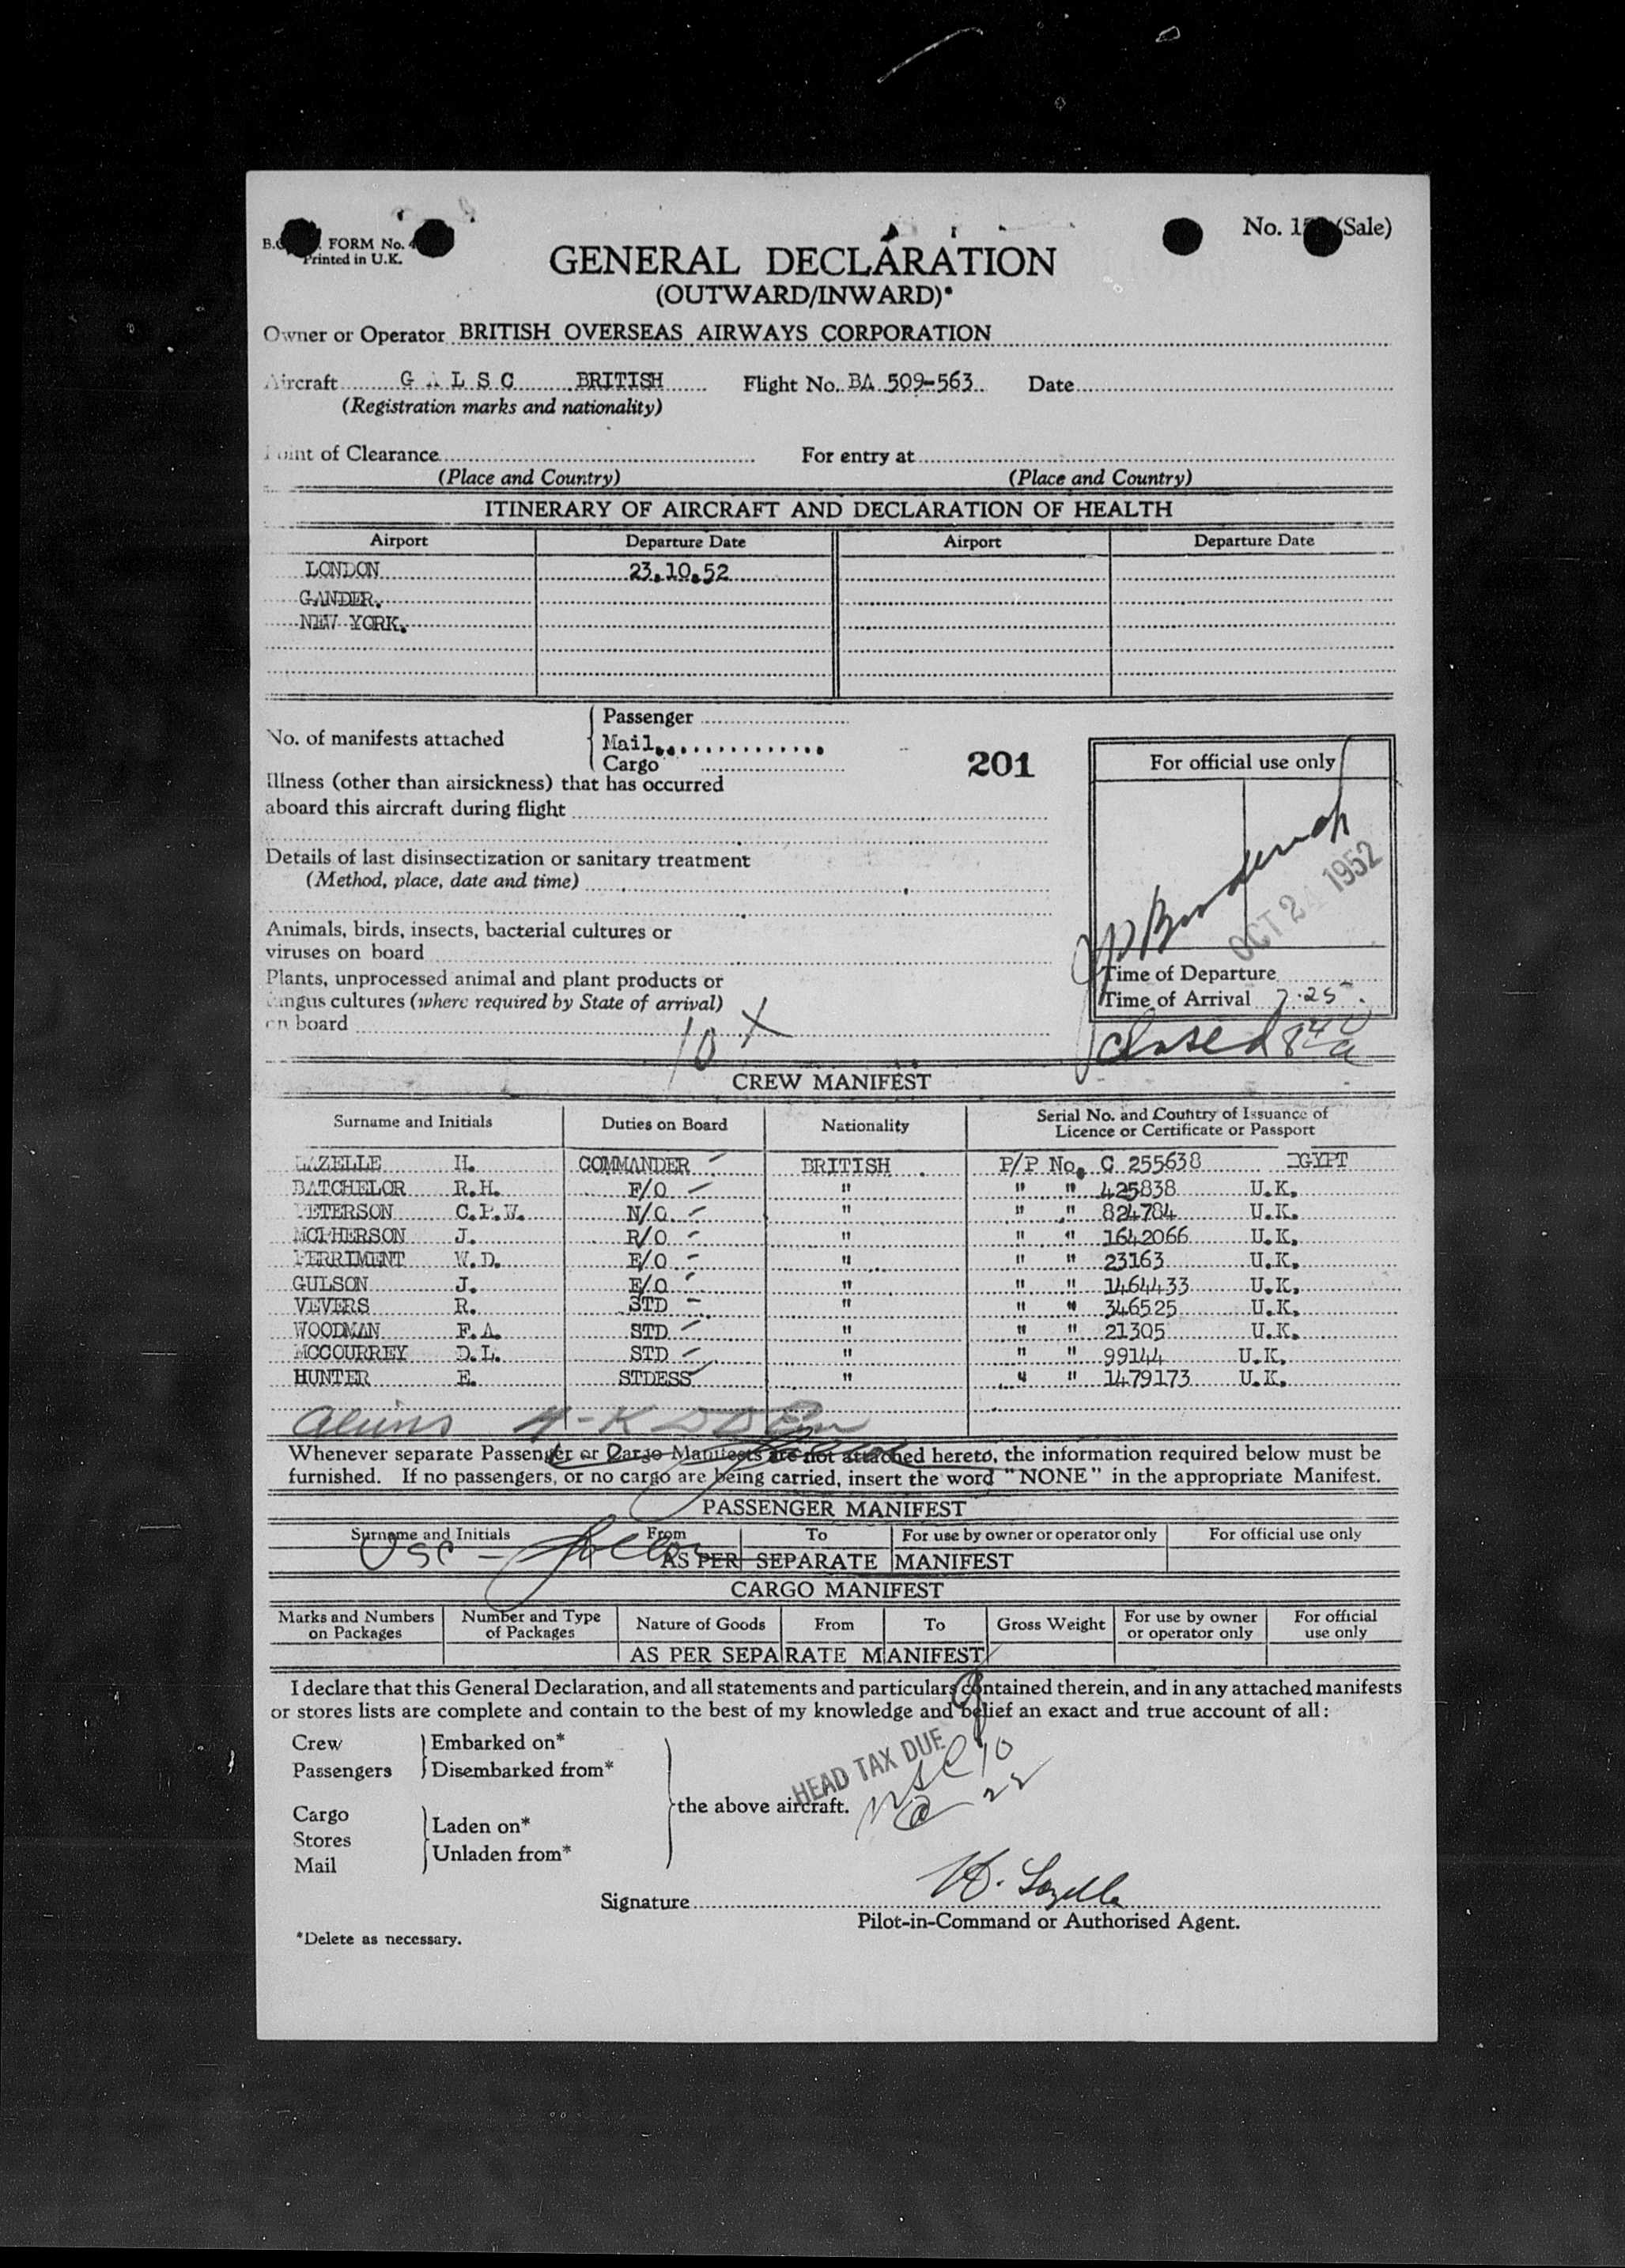 FORM No. 4
Printed in U.K.
No. 1 (Sale)
GENERAL DECLARATION
(OUTWARD/INWARD)*
Owner or Operator BRITISH OVERSEAS AIRWAYS CORPORATION
Aircraft G A L S C BRITISH Flight No. BA 509-563 Date
(Registration marks and nationality)
Point of Clearance For entry at
(Place and Country) (Place and Country)
ITINERARY OF AIRCRAFT AND DECLARATION OF HEALTH
Airport Departure Date Airport Departure Date
LONDON 23.10.52
GANDER.
NEW YORK.
Passenger
No. of manifests attached Mail
Cargo
201
For official use only
Illness (other than airsickness) that has occurred
aboard this aircraft during flight
Details of last disinsectization or sanitary treatment
(Method, place, date and time)
OCT 24 1952
Animals, birds, insects, bacterial cultures or
viruses on board
Plants, unprocessed animal and plant products or
fungus cultures (where required by State of arrival)
on board
Time of Departure
Time of Arrival 7.25
10 X
closed 8
CREW MANIFEST
Surname and Initials Duties on Board Nationality Serial No. and Country of Issuance of
Licence or Certificate or Passport
LAZELLE H. COMMANDER BRITISH P/P No. C 255638 EGYPT
BATCHELOR R.H. F/O " " " 425838 U.K.
PETERSON C.P.W. N/O " " " 824784 U.K.
MCPHERSON J. R/O " " " 1642066 U.K.
PERRIMENT W.D. E/O " " " 23163 U.K.
GULSON J. E/O " " " 1464433 U.K.
VEVERS R. STD " " " 346525 U.K.
WOODMAN F.A. STD " " " 21305 U.K.
MCCOURREY D.L. STD " " " 99144 U.K.
HUNTER E. STDESS " " " 1479173 U.K.
Aliens
Whenever separate Passenger or Cargo Manifests are not attached hereto, the information required below must be
furnished. If no passengers, or no cargo are being carried, insert the word "NONE" in the appropriate Manifest.
PASSENGER MANIFEST
Surname and Initials From To For use by owner or operator only For official use only
USC -
AS PER SEPARATE MANIFEST
CARGO MANIFEST
Marks and Numbers on Packages Number and Type of Packages Nature of Goods From To Gross Weight For use by owner or operator only For official use only
AS PER SEPARATE MANIFEST
I declare that this General Declaration, and all statements and particulars contained therein, and in any attached manifests
or stores lists are complete and contain to the best of my knowledge and belief an exact and true account of all:
Crew Embarked on*
Passengers Disembarked from*
HEAD TAX DUE
the above aircraft.
Cargo
Stores Laden on*
Mail Unladen from*
Signature H. Lazelle
Pilot-in-Command or Authorised Agent.
*Delete as necessary.